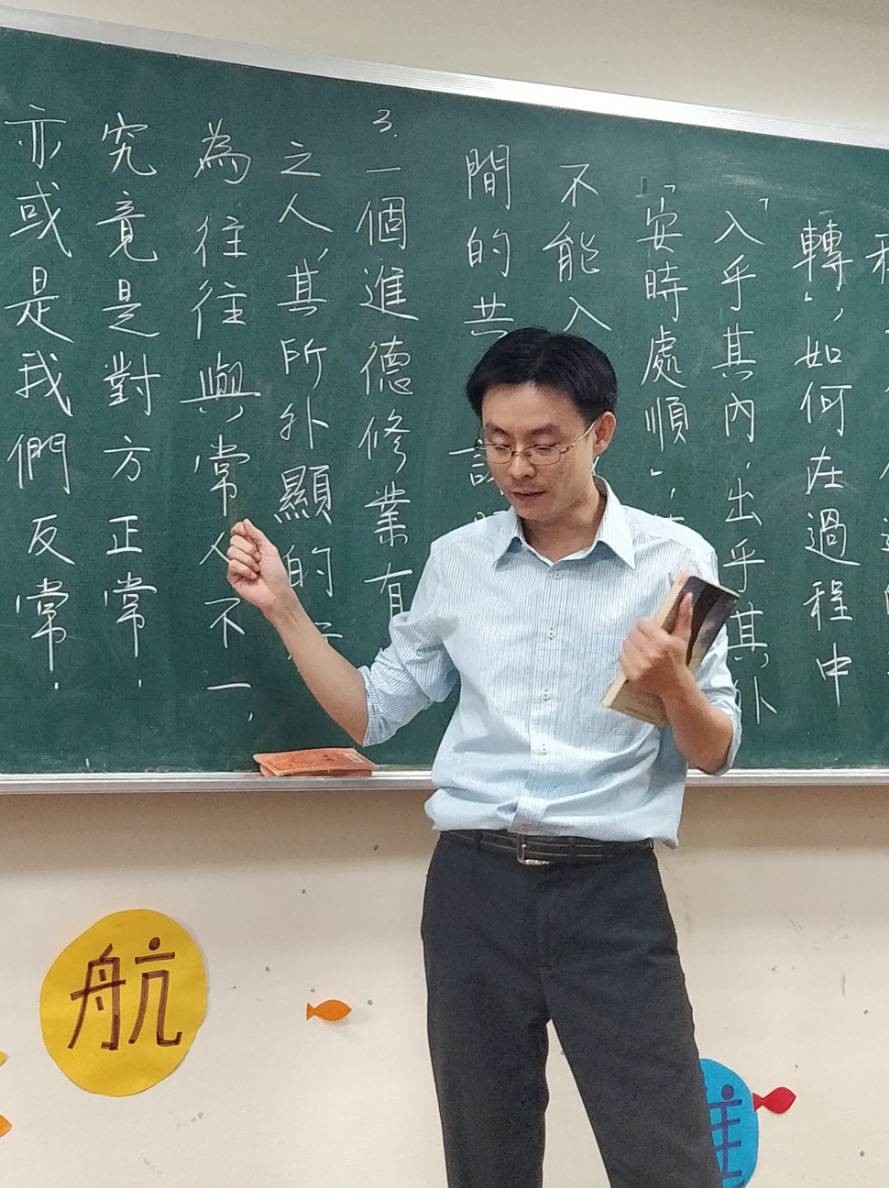 轉」,如何在過程中
「入乎其內,出乎其外
「安時處順」,
不能入
間的共
3. 一個進德修業有
之人,其所外顯的
為往往與常人不一,
究竟是對方正常,
亦或是我們反常.
航